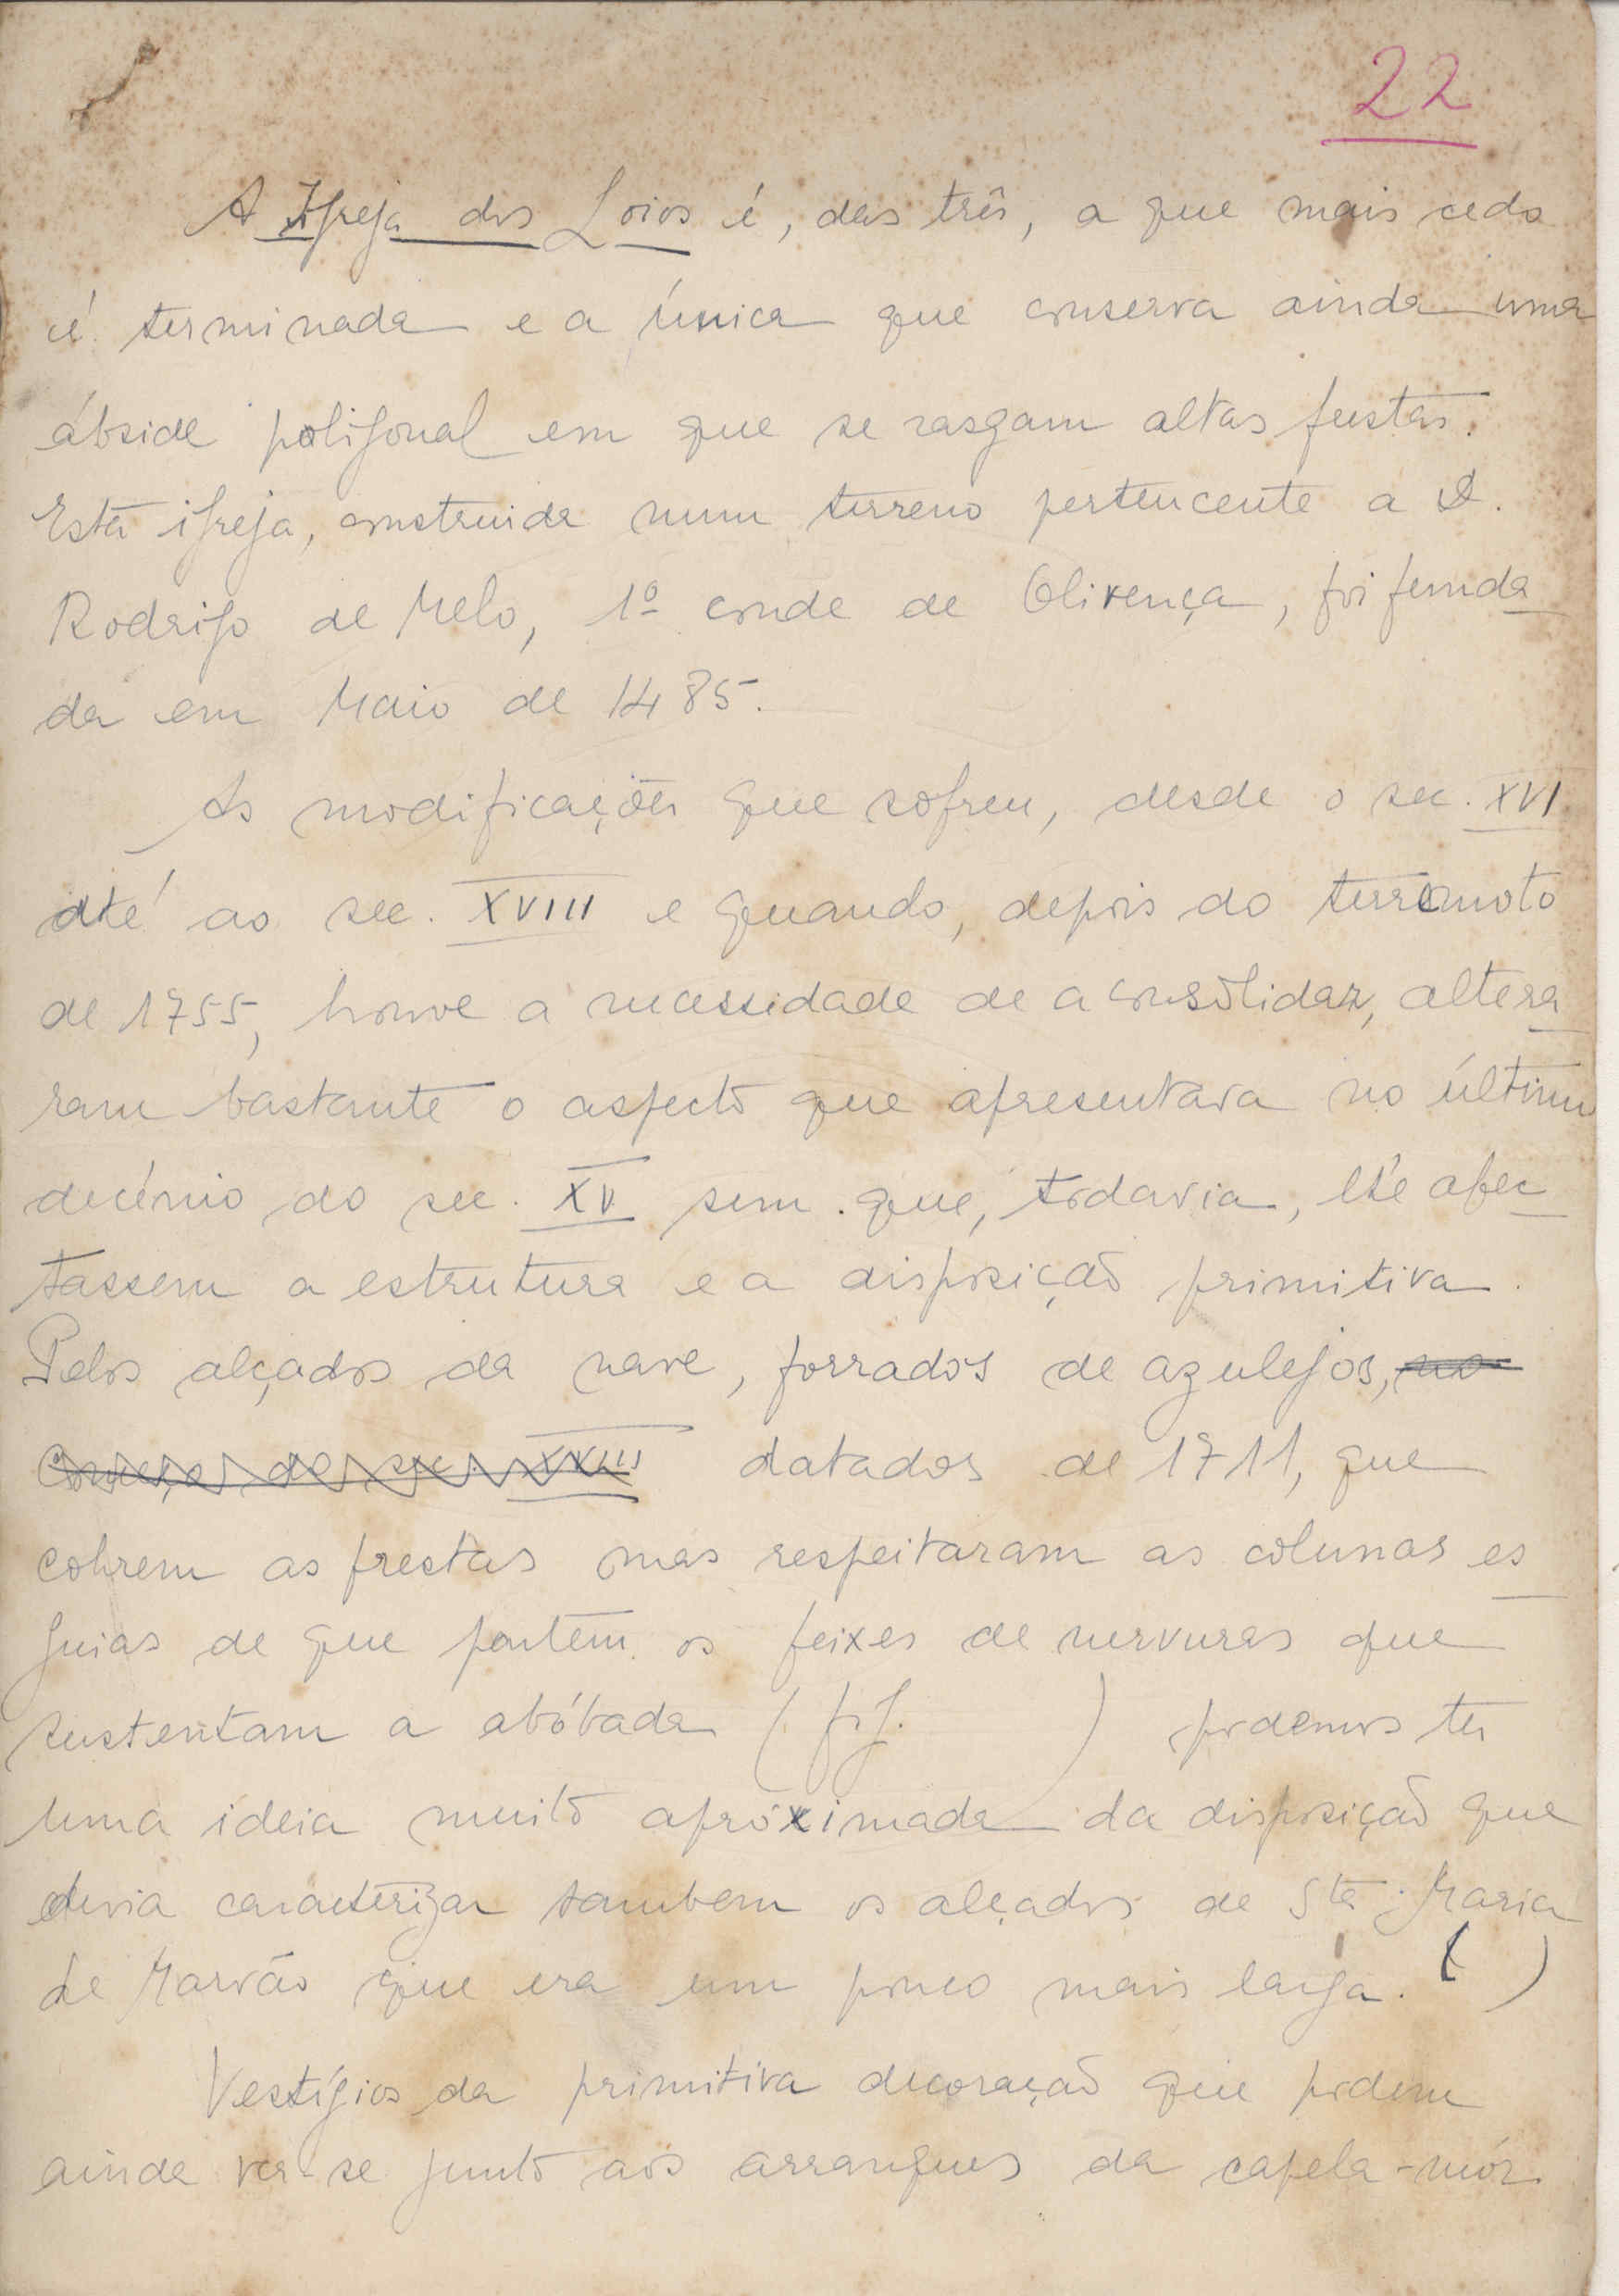 22
A Igreja dos Loios é, das três, a que mais cedo
é terminada e a única que conserva ainda uma
ábside poligonal em que se rasgam altas frestas.
Esta igreja, construida num terreno pertencente a D.
Rodrigo de Melo, 1º conde de Olivença, foi funda
da em Maio de 1485.
As modificações que sofreu, desde o sec. XVI
até ao sec. XVIII e quando, depois do terramoto
de 1755, houve a necessidade de a consolidar, altera
ram bastante o aspecto que apresentava no último
decénio do sec. XV sem que, todavia, lhe afec
tassem a estrutura e a disposição primitiva.
Pelos alçados da nave, forrados de azulejos, no
começo do sec. XVIII datados de 1711, que
cobrem as frestas mas respeitaram as colunas es
guias de que partem os feixes de nervuras que
sustentam a abóbada (fig. ) podemos ter
uma ideia muito aproximada da disposição que
devia caracterizar tambem os alçados de Sta. Maria
de Marvão que era um pouco mais larga. ( )
Vestígios da primitiva decoração que podem
ainda ver-se junto aos arranques da capela-mór